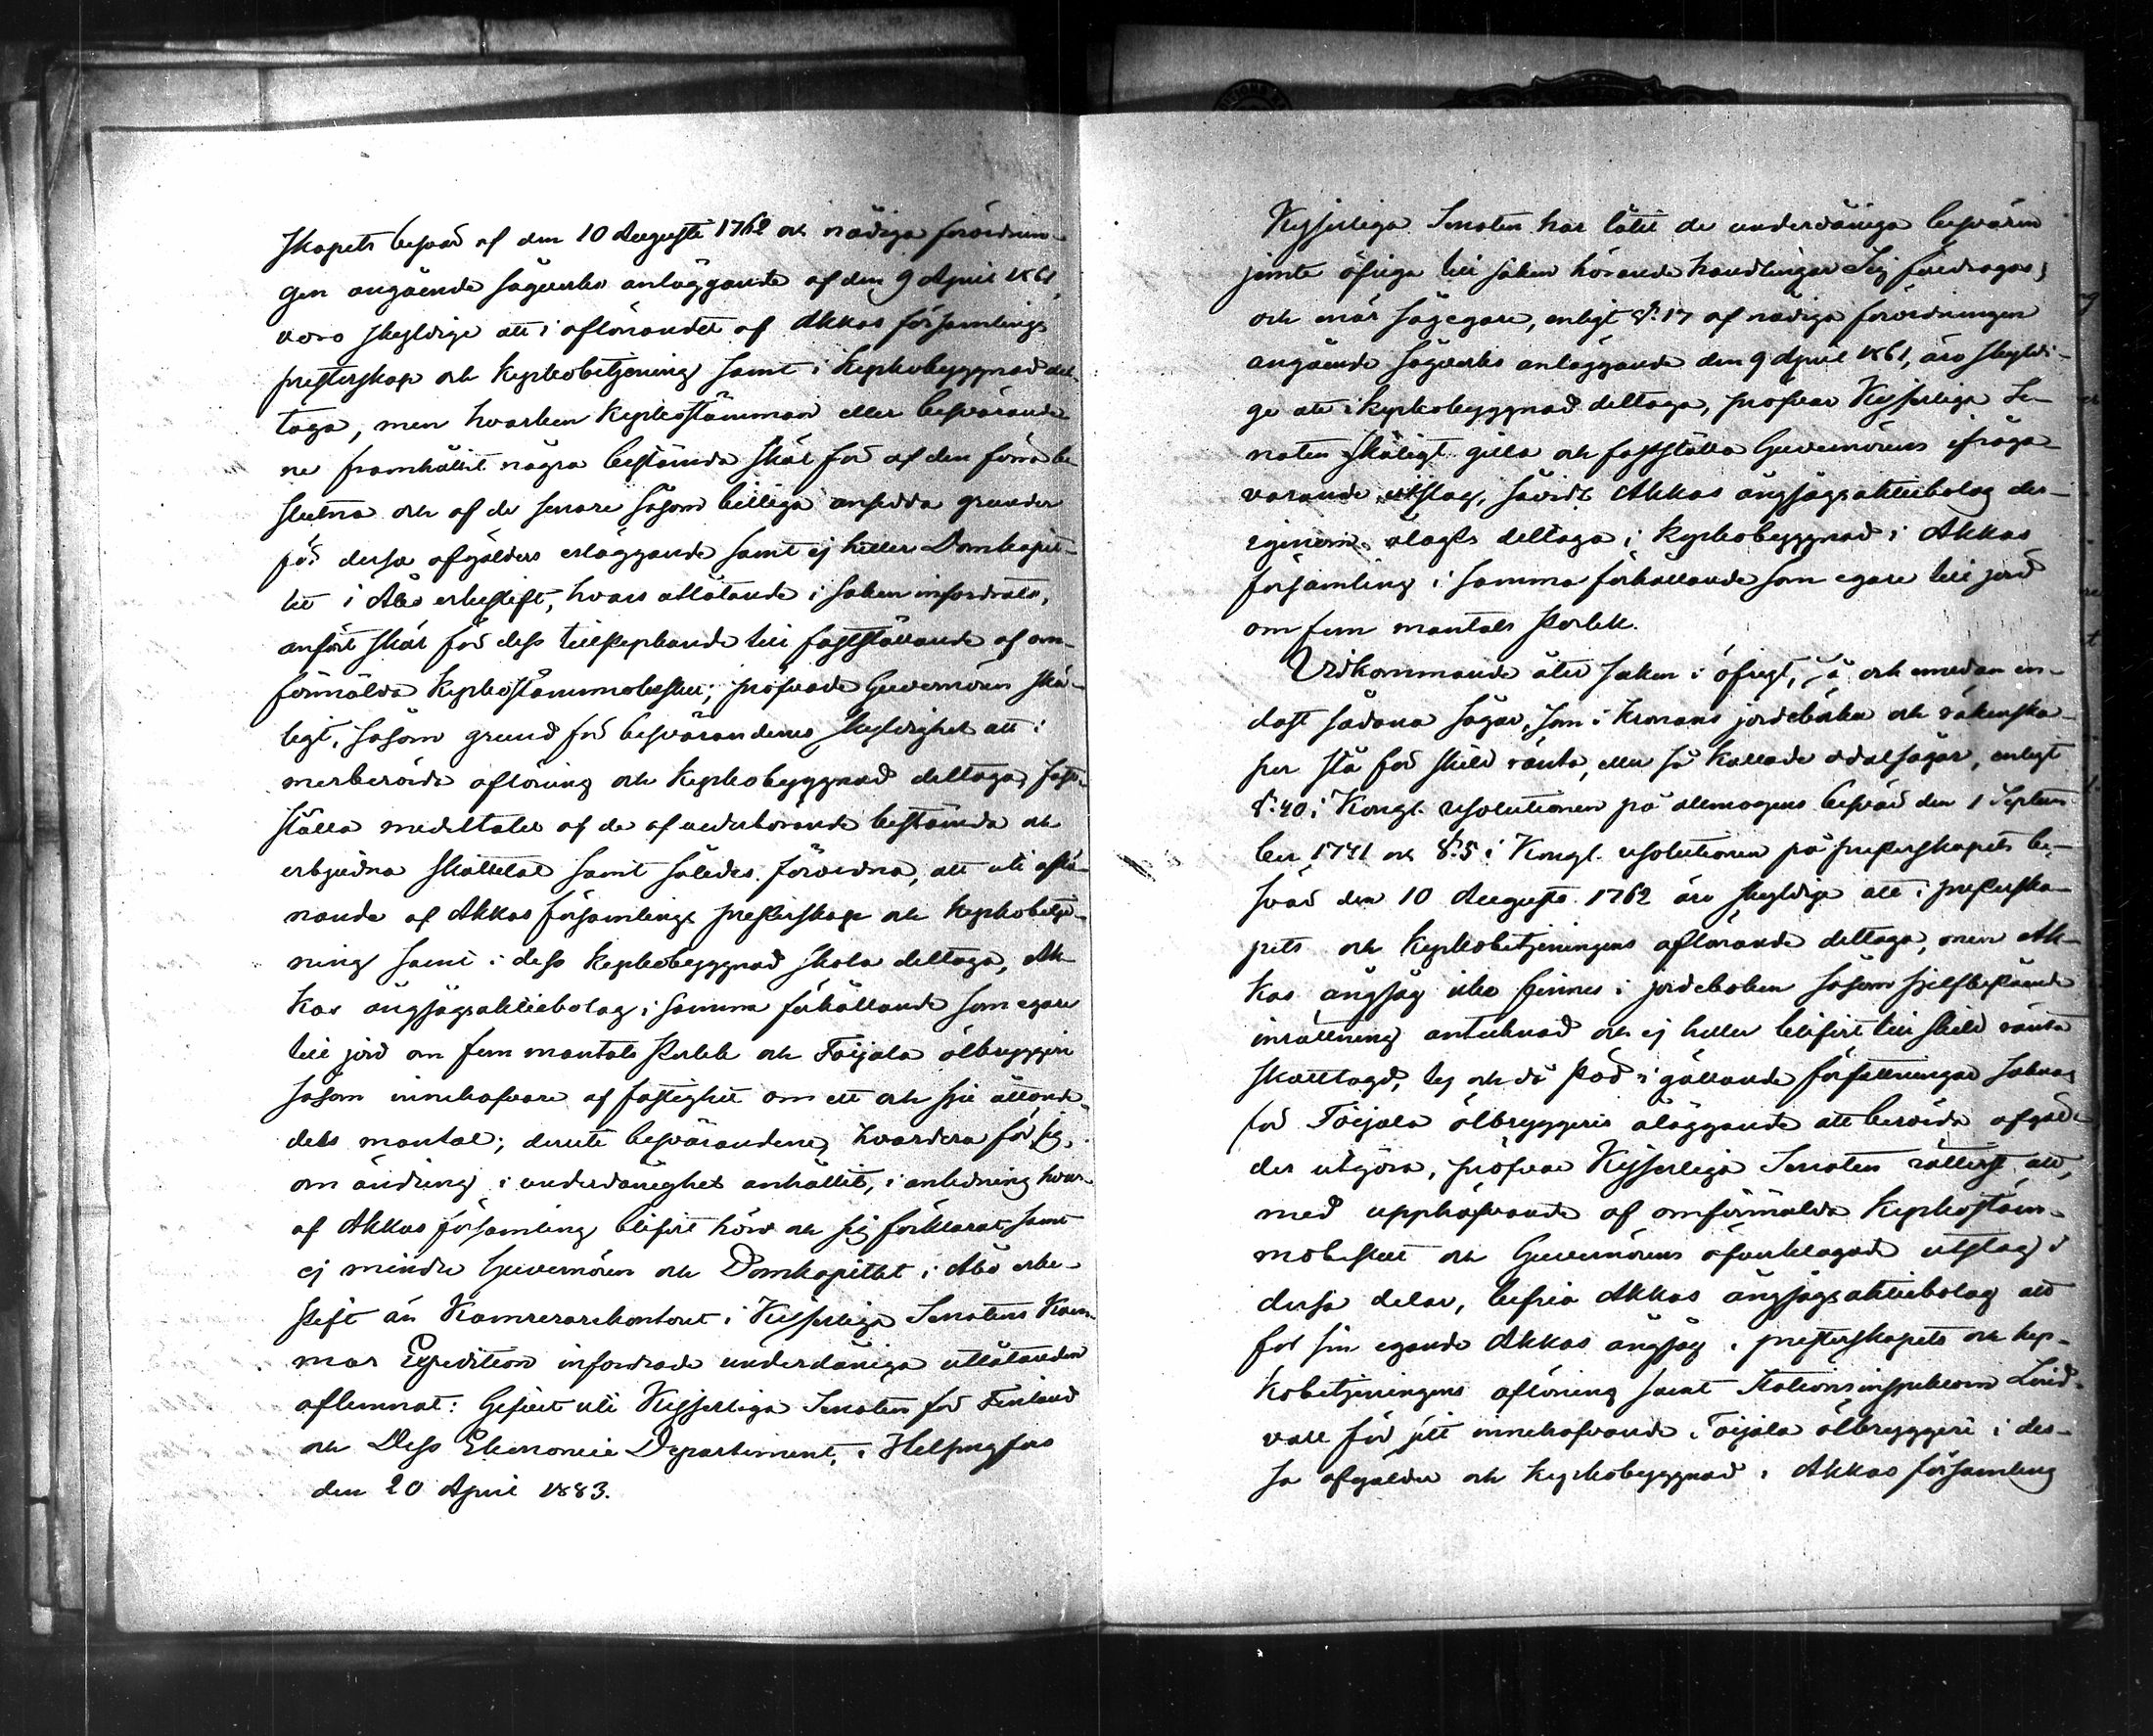 skapets besvär af den 10 Augusti 1762 och nådiga förordnin-
gen angående sågverks anläggande af den 9 April 1861,
voro skyldige att i aflönandet af Akkas församlings
presterskap och kyrkobetjening samt i kyrkobyggnad del-
taga, men hvarken kyrkostämman eller besvärande-
ne framhållit några bestämda skäl för af den förra be-
slutna och af de senare såsom billiga ansedda grunder
för dessa afgälders erläggande samt ej heller Domkapit-
let i Åbo erkestift, hvars utlåtande i saken infordrats,
anfört skäl för dess tillstyrkande till fastställande af om-
förmälda kyrkostämmobeslut; pröfvade Guvernören skä-
ligt, såsom grund för besvärandenes skyldighet att i
merberörda aflöning och kyrkobyggnad deltaga, fast-
ställa medeltalet af de af vederbörande bestämda och
erbjudna skattetal samt således förordna, att uti aflö-
nande af Akkas församlings presterskap och kyrkobetje-
ning samt i dess kyrkobyggnad skola deltaga, Ak-
kas ångsågsaktiebolag i samma förhållande som egare
till jord om fem mantals storlek och Toijala ölbryggeri
såsom innehafvare af fastighet om ett och sju åttonde-
dels mantal; deruti besvärandene, hvardera för sig,
om ändring i underdånighet anhållit, i anledning hvar-
af Akkas församling blifvit hörd och sig förklarat samt
ej mindre Guvernören och Domkapitlet i Åbo erke-
stift än Kamrerarekontoret i Kejserliga Senatens Kam-
mar Expedition infordrade underdåniga utlåtanden
aflemnat: Gifvet uti Kejserliga Senaten för Finland
och Dess Ekonomie Departement, i Helsingfors
den 20 April 1883.
Kejserliga Senaten har låtit de underdåniga besvären
jemte öfriga till saken hörande handlingar Sig föredragas;
och enär sågegare, enligt §. 17 af nådiga förordningen
angående sågverks anläggande den 9 April 1861, äro skyldi-
ge att i kyrkobyggnad deltaga, pröfvar Kejserliga Se-
naten skäligt gilla och fastställa Guvernörens ifråga-
varande utslag, såvidt Akkas ångsågsaktiebolag der-
igenom ålagts deltaga i kyrkobyggnad i Akkas
församling i samma förhållande som egare till jord
om fem mantals storlek.
Vidkommande åter saken i öfrigt, så och emedan en-
dast sådana sågar, som i Kronans jordeböcker och räkenska-
per stå för skild ränta, eller så kallade odalsågar, enligt
§. 40 i Kongl. resolutionen på allmogens besvär den 1 Septem-
ber 1741 och §. 5 i Kongl. resolutionen på presterskapets be-
svär den 10 Augusti 1762 äro skyldige att i presterska-
pets och kyrkobetjeningens aflönande deltaga, men Ak-
kas ångsåg icke finnes i jordeboken såsom sjelfbestående
inrättning antecknad och ej heller blifvit till skild ränta
skattlagd, ty och då stöd i gällande författningar saknas
för Toijala ölbryggeris åläggande att berörda afgäl-
der utgöra, pröfvar Kejserliga Senaten rättvist att,
med upphäfvande af omförmälda kyrkostäm-
mobeslut och Guvernörens öfverklagade utslag i
dessa delar, befria Akkas ångsågsaktiebolag att
för sin egande Akkas ångsåg i presterskapets och kyr-
kobetjeningens aflöning samt Stationsinspektoren Lind-
vall för sitt innehafvande Toijala ölbryggeri i des-
sa afgälder och kyrkobyggnad i Akkas församling